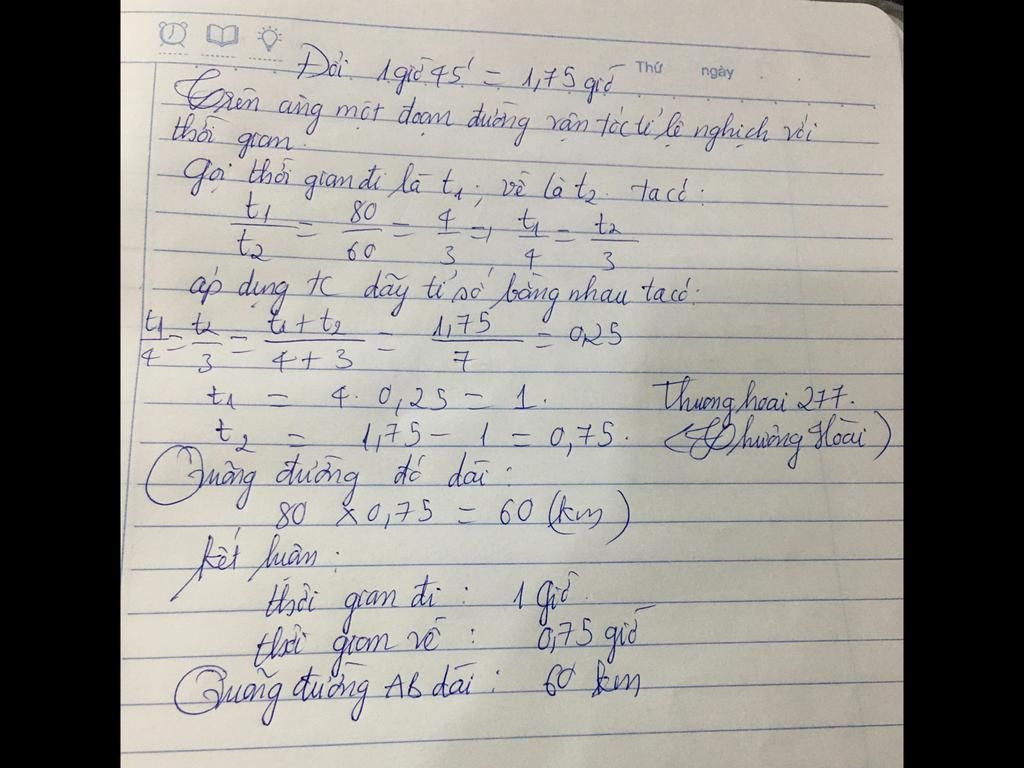 Thứ ngày
Đổi 1 giờ 45' = 1,75 giờ
Trên cùng một đoạn đường vận tốc tỉ lệ nghịch với
thời gian.
Gọi thời gian đi là t1, về là t2. ta có:
t1/t2 = 80/60 = 4/3 => t1/4 = t2/3
áp dụng tc dãy tỉ số bằng nhau ta có:
t1/4 = t2/3 = (t1 + t2)/(4 + 3) = 1,75/7 = 0,25
t1 = 4. 0,25 = 1. Thuonghoai 277.
t2 = 1,75 - 1 = 0,75. (Thương Hoài)
Quãng đường đó dài:
80 x 0,75 = 60 (km)
Kết luận:
thời gian đi: 1 giờ.
thời gian về: 0,75 giờ
Quãng đường AB dài: 60 km